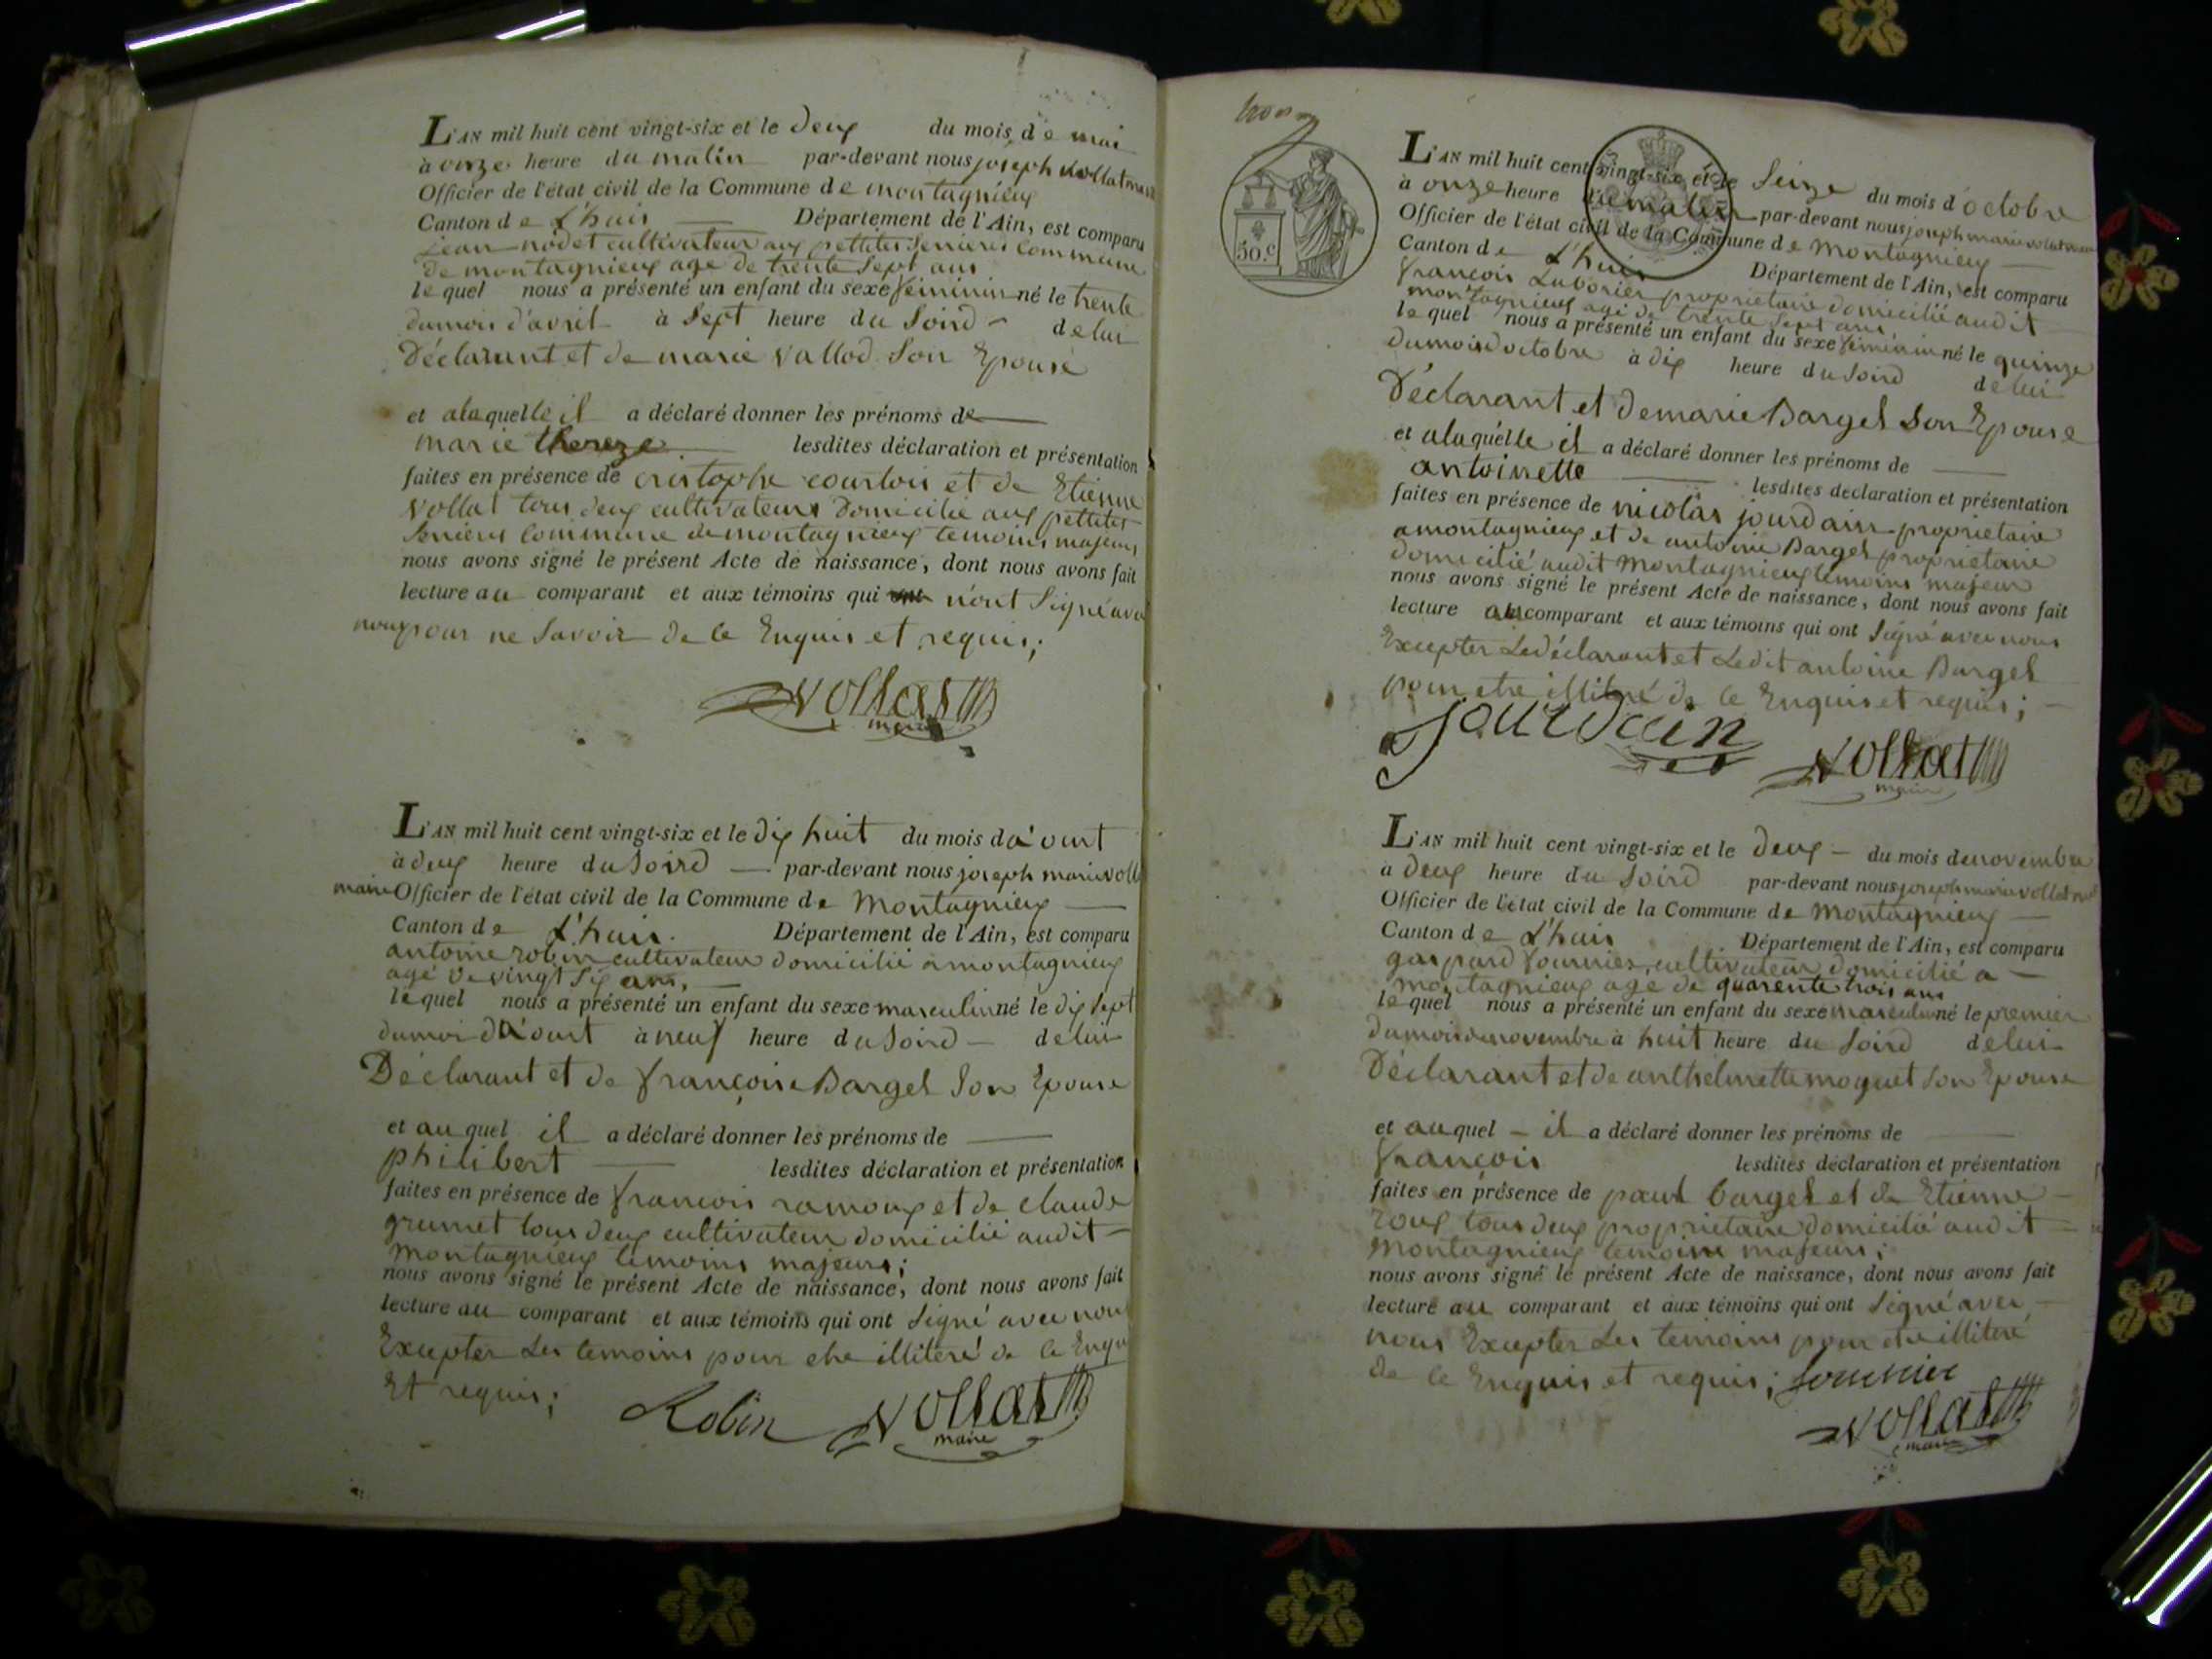 L'AN mil huit cent vingt-six et le deux du mois de mai
à onze heure du matin par-devant nous joseph vollat
Officier de l'état civil de la Commune de montagnieux
Canton de L'huis Département de l'Ain, est comparu
jean nodet cultivateur aux pettites serrieres Commune
de montagnieux age de trente sept ans
lequel nous a présenté un enfant du sexe féminin né le trente
du mois d'avril à sept heure du soird de lui
Déclarant et de marie vallod son Epouse
et alaquelle il a déclaré donner les prénoms de
marie thereze lesdites déclaration et présentation
faites en présence de cristophe courtois et de Etienne
vollat tous deux cultivateurs Domicilie aux pettites
serrieres Commune de montagnieux temoins majeurs
nous avons signé le présent Acte de naissance, dont nous avons fait
lecture au comparant et aux témoins qui n'ont signé avec
nous pour ne savoir de ce Enquis et requis;
vollat
maire
L'AN mil huit cent vingt-six et le dix huit du mois d'aout
à deux heure du soird par-devant nous joseph marie voll
maire Officier de l'état civil de la Commune de Montagnieux
Canton de L'huis. Département de l'Ain, est comparu
antoine robin cultivateur domicilié a montagnieux
age de vingt six ans,
lequel nous a présenté un enfant du sexe masculin né le dix sept
du moi d'aout à neuf heure du soird de lui
Déclarant et de françoise Barget son Epouse
et auquel il a déclaré donner les prénoms de
philibert lesdites déclaration et présentation
faites en présence de francois ramoux et de claude
grumet tous deux cultivateur domicilié audit
Montagnieux temoins majeurs;
nous avons signé le présent Acte de naissance, dont nous avons fait
lecture au comparant et aux témoins qui ont signé avec nous
Excepter les temoins pour etre illiteré de ce Enqu
Et requis;
Robin vollat
maire
50.c
L'AN mil huit cent vingt-six et le seize du mois d'octobre
à onze heure du matin par-devant nous joseph marie vollat
Officier de l'état civil de la Commune de Montagnieux
Canton de L'huis Département de l'Ain, est comparu
francois Laborier proprietaire domicilié audit
montagnieux age de trente sept ans
lequel nous a présenté un enfant du sexe féminin né le quinze
du mois d'octobre à dix heure du soird de lui
Déclarant et de marie Barget son Epouse
et alaquelle il a déclaré donner les prénoms de
antoinette lesdites déclaration et présentation
faites en présence de nicolas jourdain proprietaire
a montagnieux et de antoine Barget proprietaire
domicilié audit Montagnieux temoins majeur
nous avons signé le présent Acte de naissance, dont nous avons fait
lecture au comparant et aux témoins qui ont signé avec nous
Excepter Le déclarant et Ledit antoine Barget
pour etre illiteré de ce Enquis et requis;
jourdain vollat
maire
L'AN mil huit cent vingt-six et le deux du mois de novembre
à deux heure du soird par-devant nous joseph marie vollat
Officier de l'état civil de la Commune de Montagnieux
Canton de L'huis Département de l'Ain, est comparu
gaspard fournier cultivateur domicilié a
montagnieux age de quarente trois ans
lequel nous a présenté un enfant du sexe masculin né le premier
du mois de novembre à huit heure du soird de lui
Déclarant et de anthelmette moquet son Epouse
et auquel il a déclaré donner les prénoms de
francois lesdites déclaration et présentation
faites en présence de paul barget et de Etienne
roux tous deux proprietaire domicilié audit
Montagnieux temoins majeurs;
nous avons signé le présent Acte de naissance, dont nous avons fait
lecture au comparant et aux témoins qui ont signé avec
nous Excepter Les temoins pour etre illiteré
de ce Enquis et requis; fournier
vollat
maire